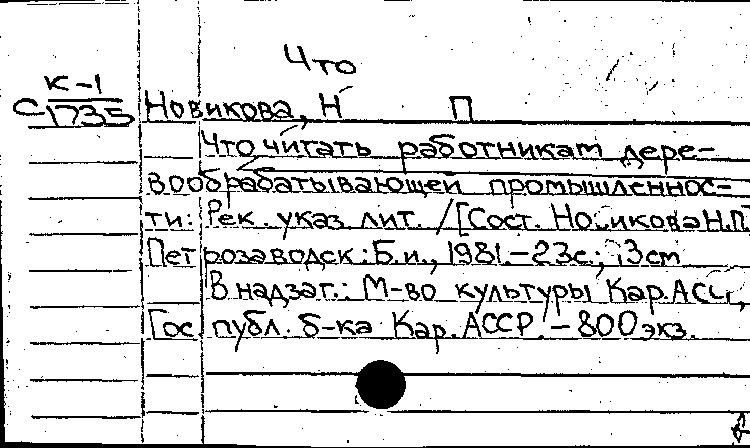 Что
К-1
С1735
Новикова, Н П
Что читать работникам дере-
вообрабатывающей промышленнос-
ти: Рек. указ. лит. /[Сост. Новикова Н.П.
Петрозаводск: Б.и., 1981.-23с.; 13см
В надзаг.: М-во культуры Кар.АССР,
Гос. публ. б-ка Кар. АССР. - 800 экз.